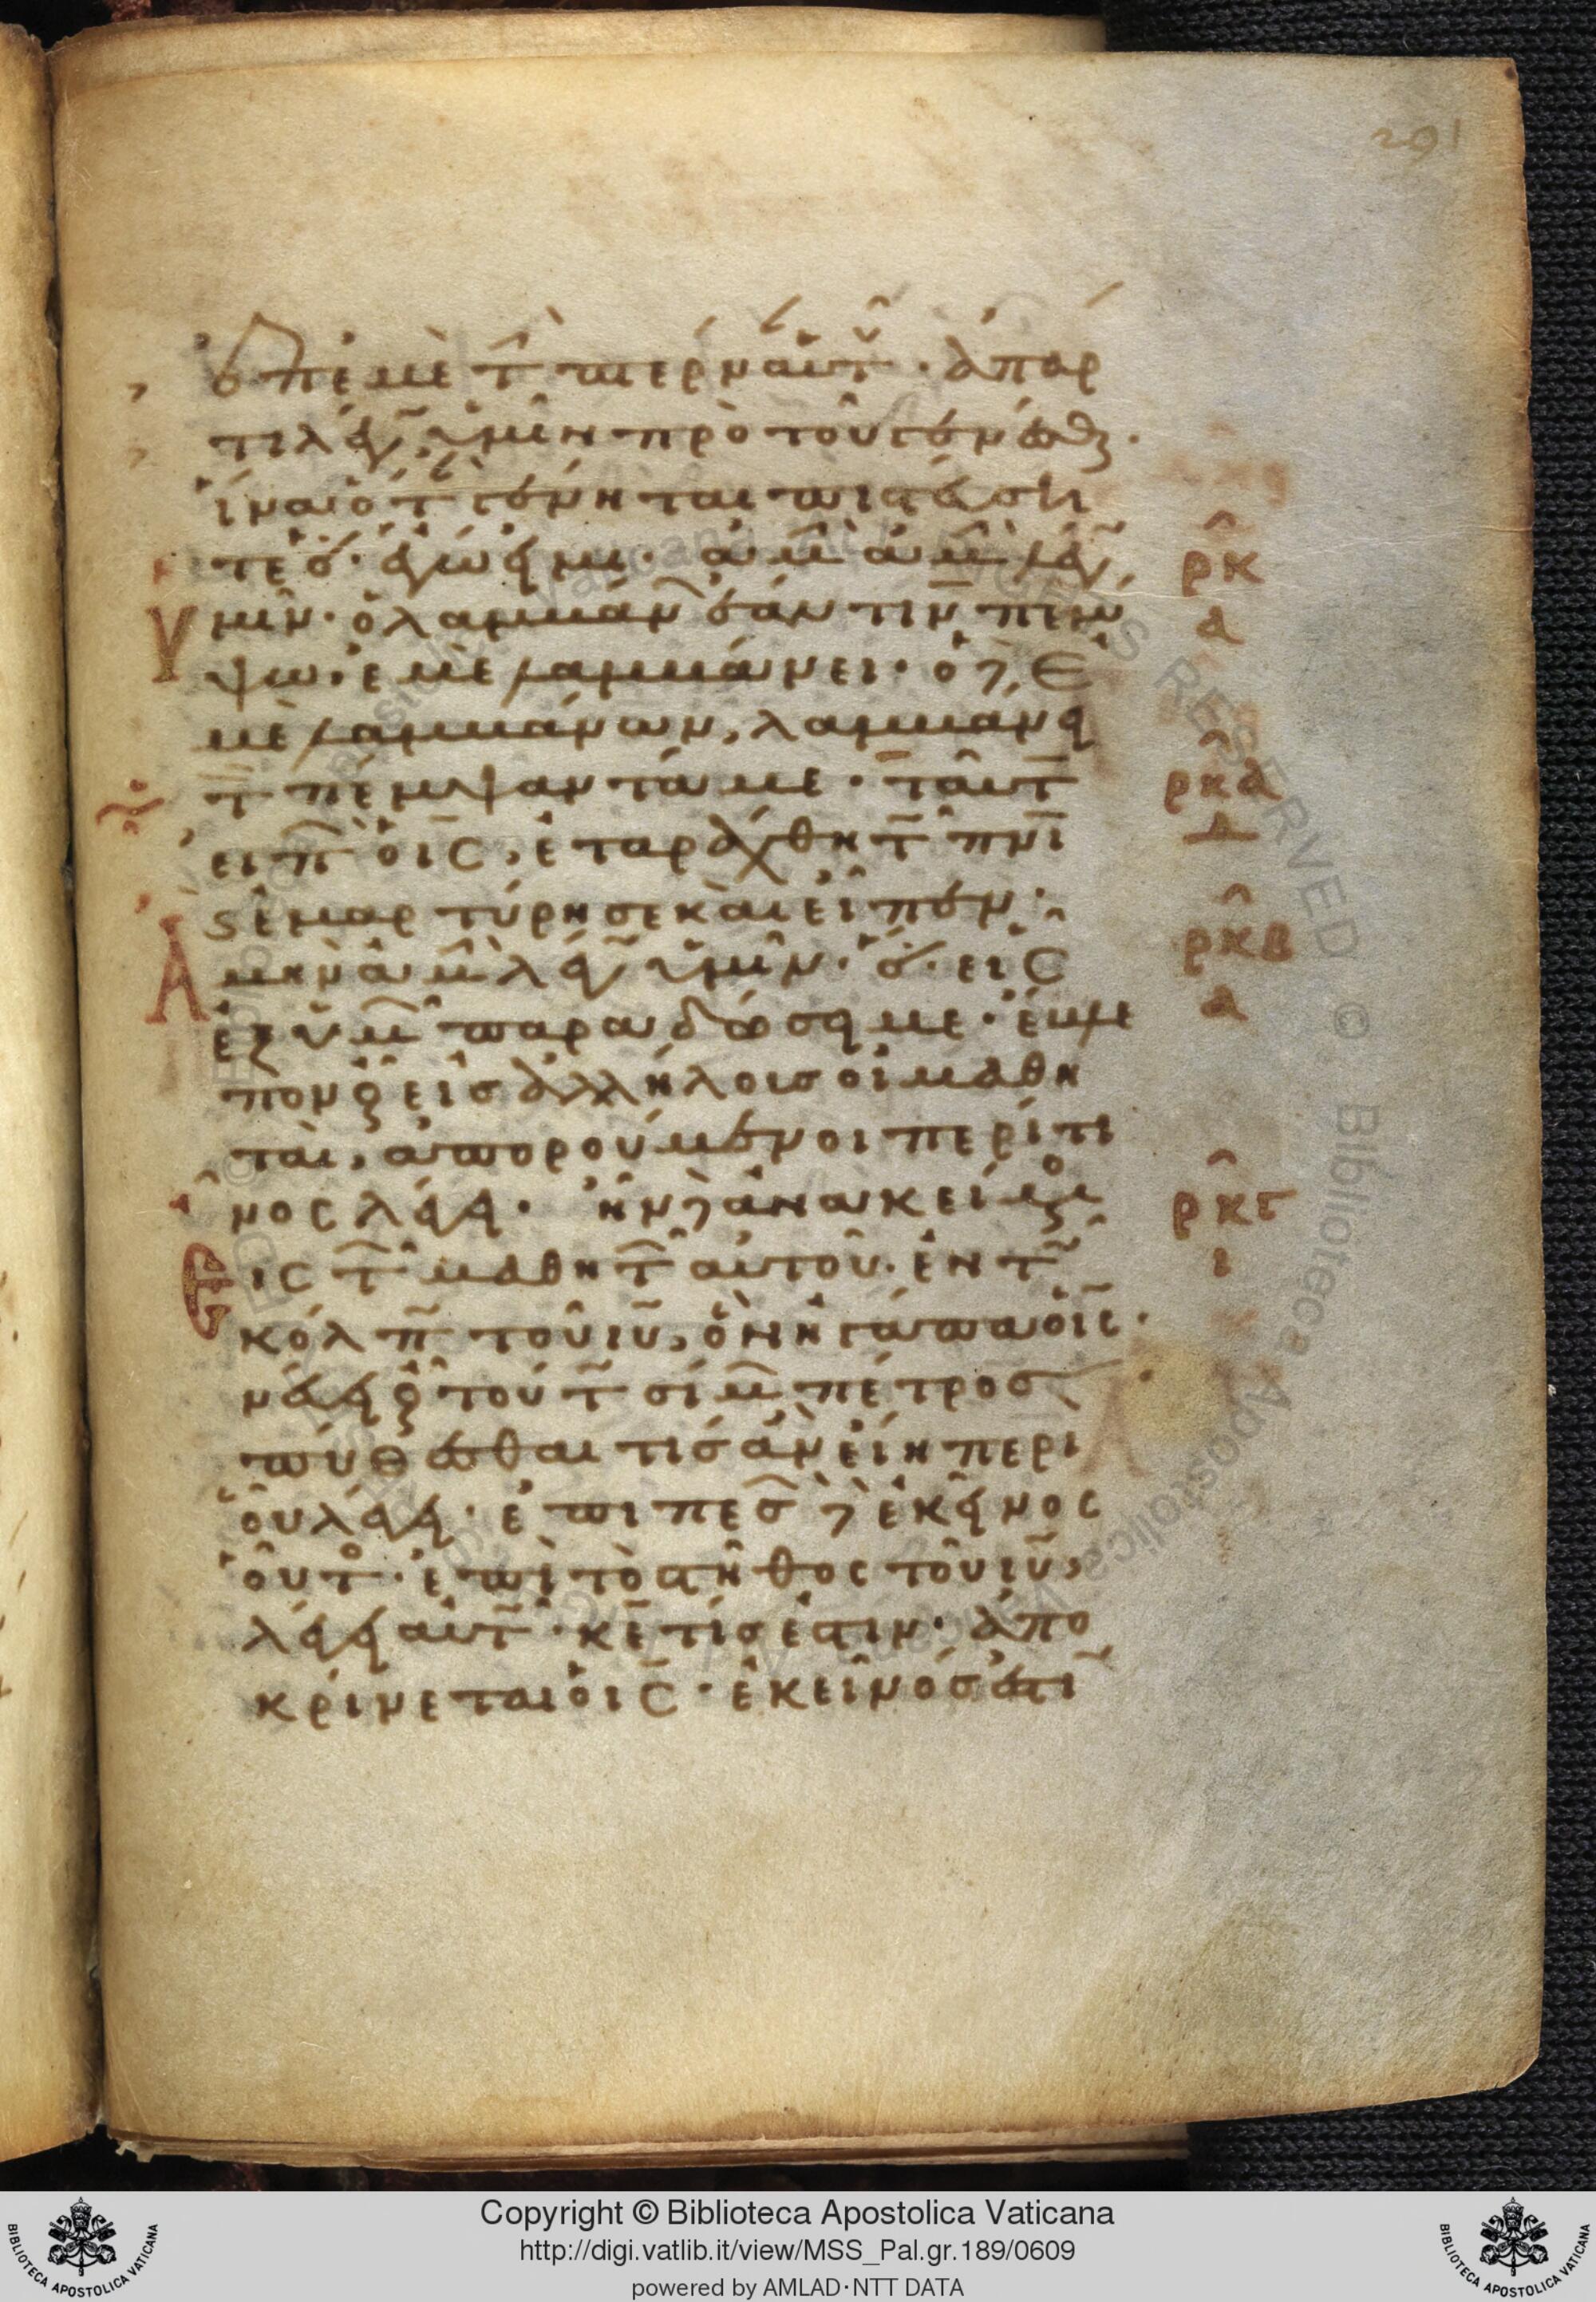 291
ἐπ' ἐμὲ τ πτερναυτ· ἀπαρ
τι λέγ ὑμῖν πρὸ τοῦ γενέσθ·
ἵνα ὅτ γένηται πιστεύση
τε ὅτι ἐγώ εἰμι· ἀμ ἀμ λέγ
ὑμῖν· ὁ λαμβάν ἐάν τιν πεμ
ψω· ἐμὲ λαμβάνει· ὁ δ ἐ
μὲ λαμβάνων, λαμβάνει
τ πέμψαντά με· ταυτ
ειπ ὁ ις, ἐταράχθη τ πνι
ς ἐμαρτύρησε καὶ εἶπεν·
Ἀμὴν ἀμ λέγ ὑμῖν· ὅτι εἷς
ἐξ ὑμ παραδώσει με· ἔβλε
πον οὖν εἰς ἀλλήλους οἱ μαθη
ταὶ, ἀπορούμενοι περὶ τί
νος λέγει· ἦν δ ἀνακείμενος
εἷς τ μαθητ αὐτοῦ· ἐν τ
κόλπ τοῦ ιυ, ὃν ἠγάπα ὁ ις·
νεύει οὖν τούτ σίμ πέτρος
πυθέσθαι τίς ἂν εἴη περὶ
οὗ λέγει· ἐπιπεσ δὲ ἐκεῖνος
οὕτ· ἐπὶ τὸ στῆθος τοῦ ιυ,
λέγει αὐτ· κε τίς ἐστιν· ἀπο
κρίνεται ὁ ις· ἐκεῖνός ἐστι
ρκ
α
ρκα
δ
ρκβ
α
ρκγ
ι
Copyright © Biblioteca Apostolica Vaticana
http://digi.vatlib.it/view/MSS_Pal.gr.189/0609
powered by AMLAD·NTT DATA
BIBLIOTECA APOSTOLICA VATICANA
BIBLIOTECA APOSTOLICA VATICANA